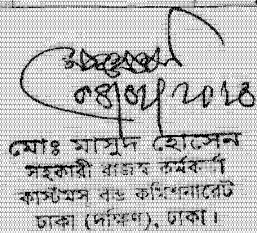 মোঃ মাসুদ হোসেন
সহকারী রাজস্ব কর্মকর্তা
কাস্টমস বন্ড কমিশনারেট
ঢাকা (দক্ষিণ), ঢাকা।